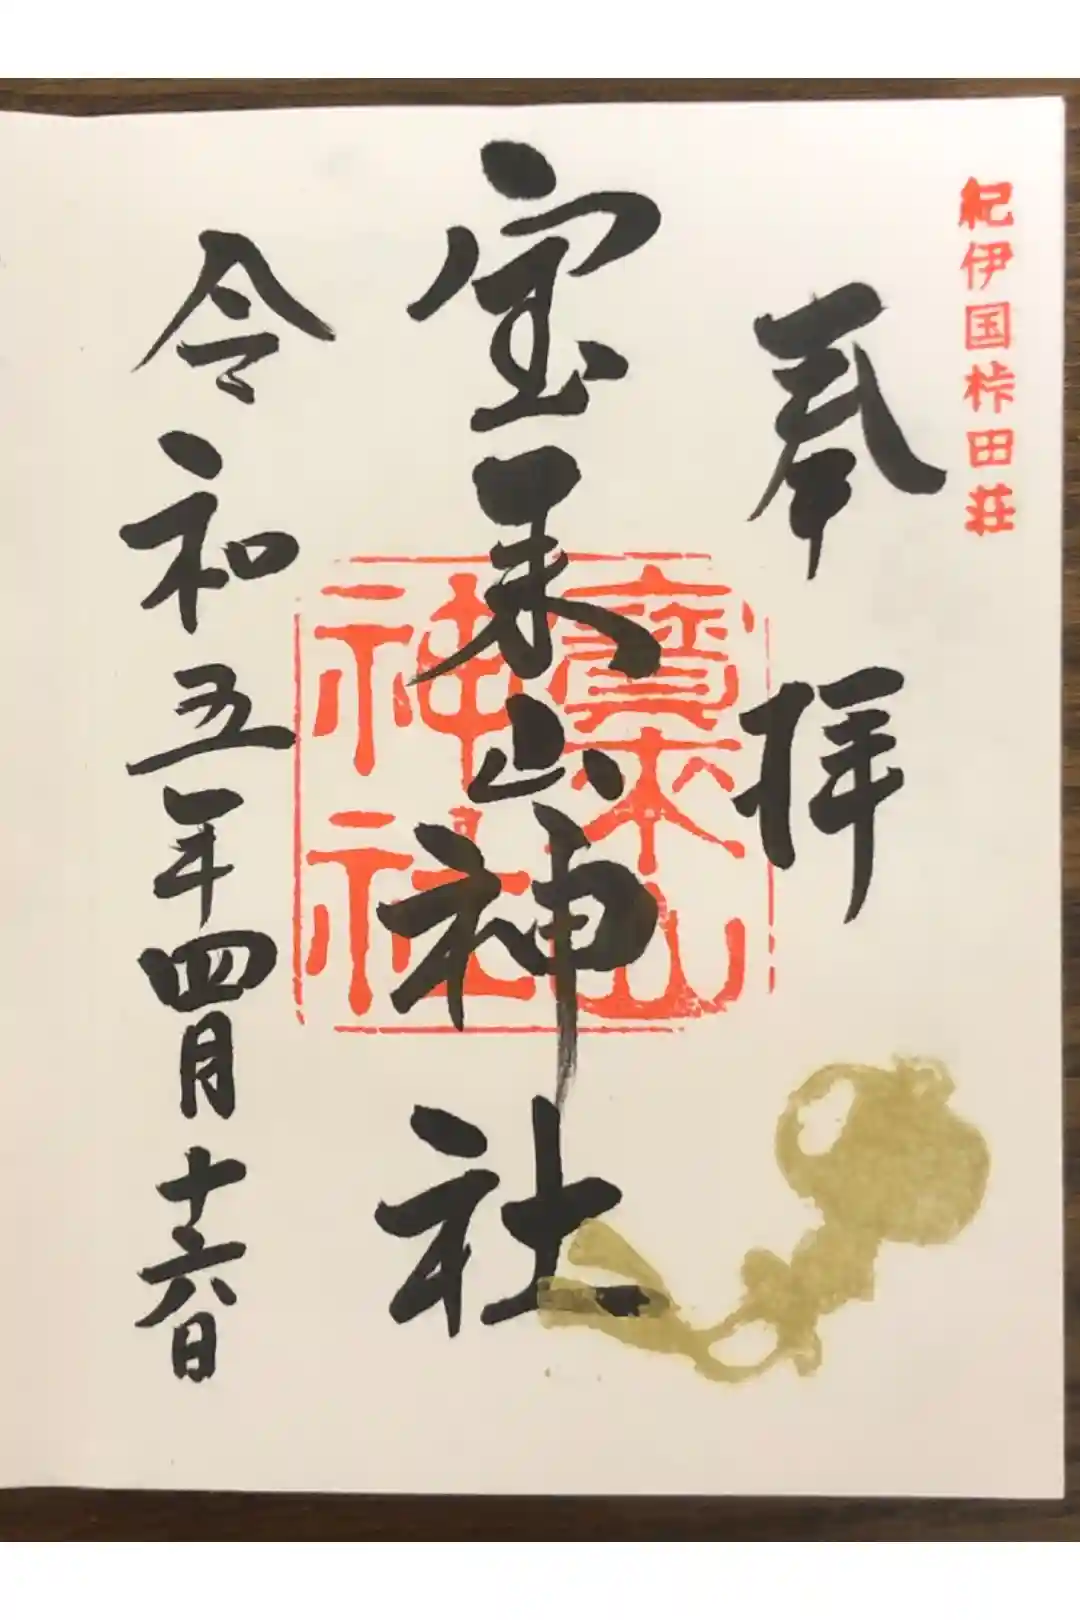 紀伊国桛田荘
奉拝
宝来山神社
寶来山
神社
令和五年四月十六日